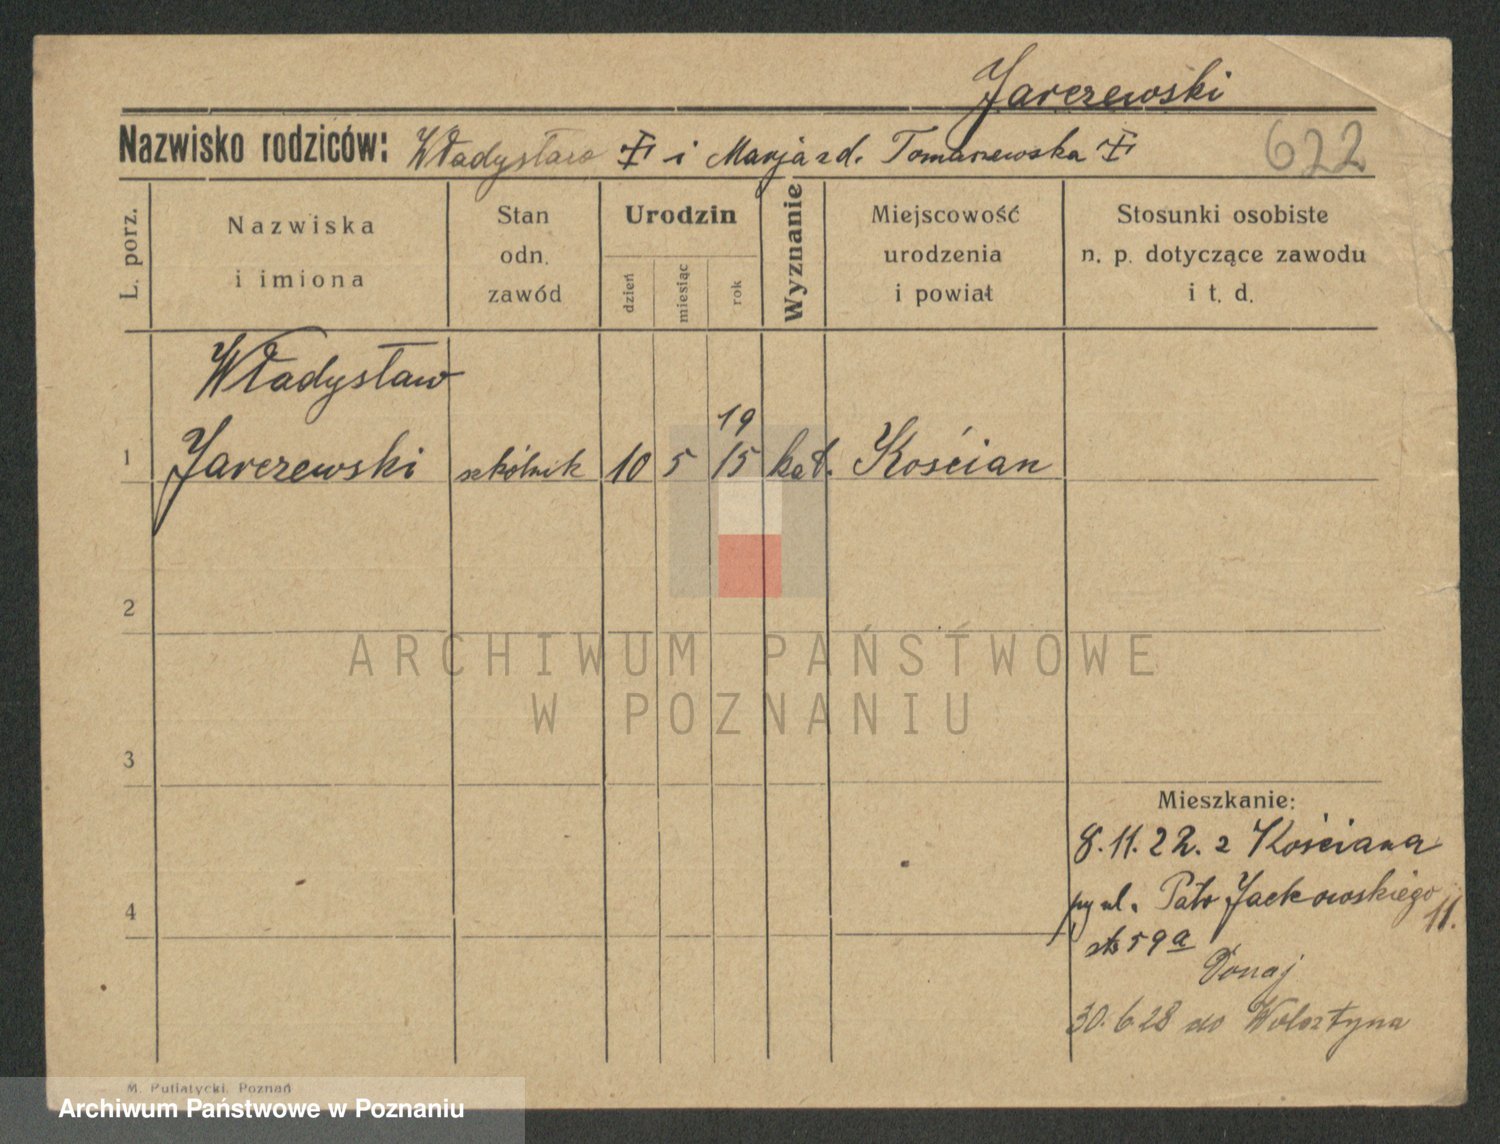 Jarczewski
Nazwisko rodziców: Władysław i Marja zd. Tomaszewska
622
L. porz.
Nazwiska
i imiona
Stan
odn.
zawód
Urodzin
dzień
miesiąc
rok
Wyznanie
Miejscowość
urodzenia
i powiat
Stosunki osobiste
n. p. dotyczące zawodu
i t. d.
Władysław
19
1 Jarczewski szkólnik 10 5 15 kat. Kościan
2
ARCHIWUM PAŃSTWOWE
W POZNANIU
3
Mieszkanie:
8.11.22. z Kościana
ul. Patr Jackowskiego
11.
4
59a
Donaj
30.6.28 do Wolsztyna
M. Putiatycki, Poznań
Archiwum Państwowe w Poznaniu